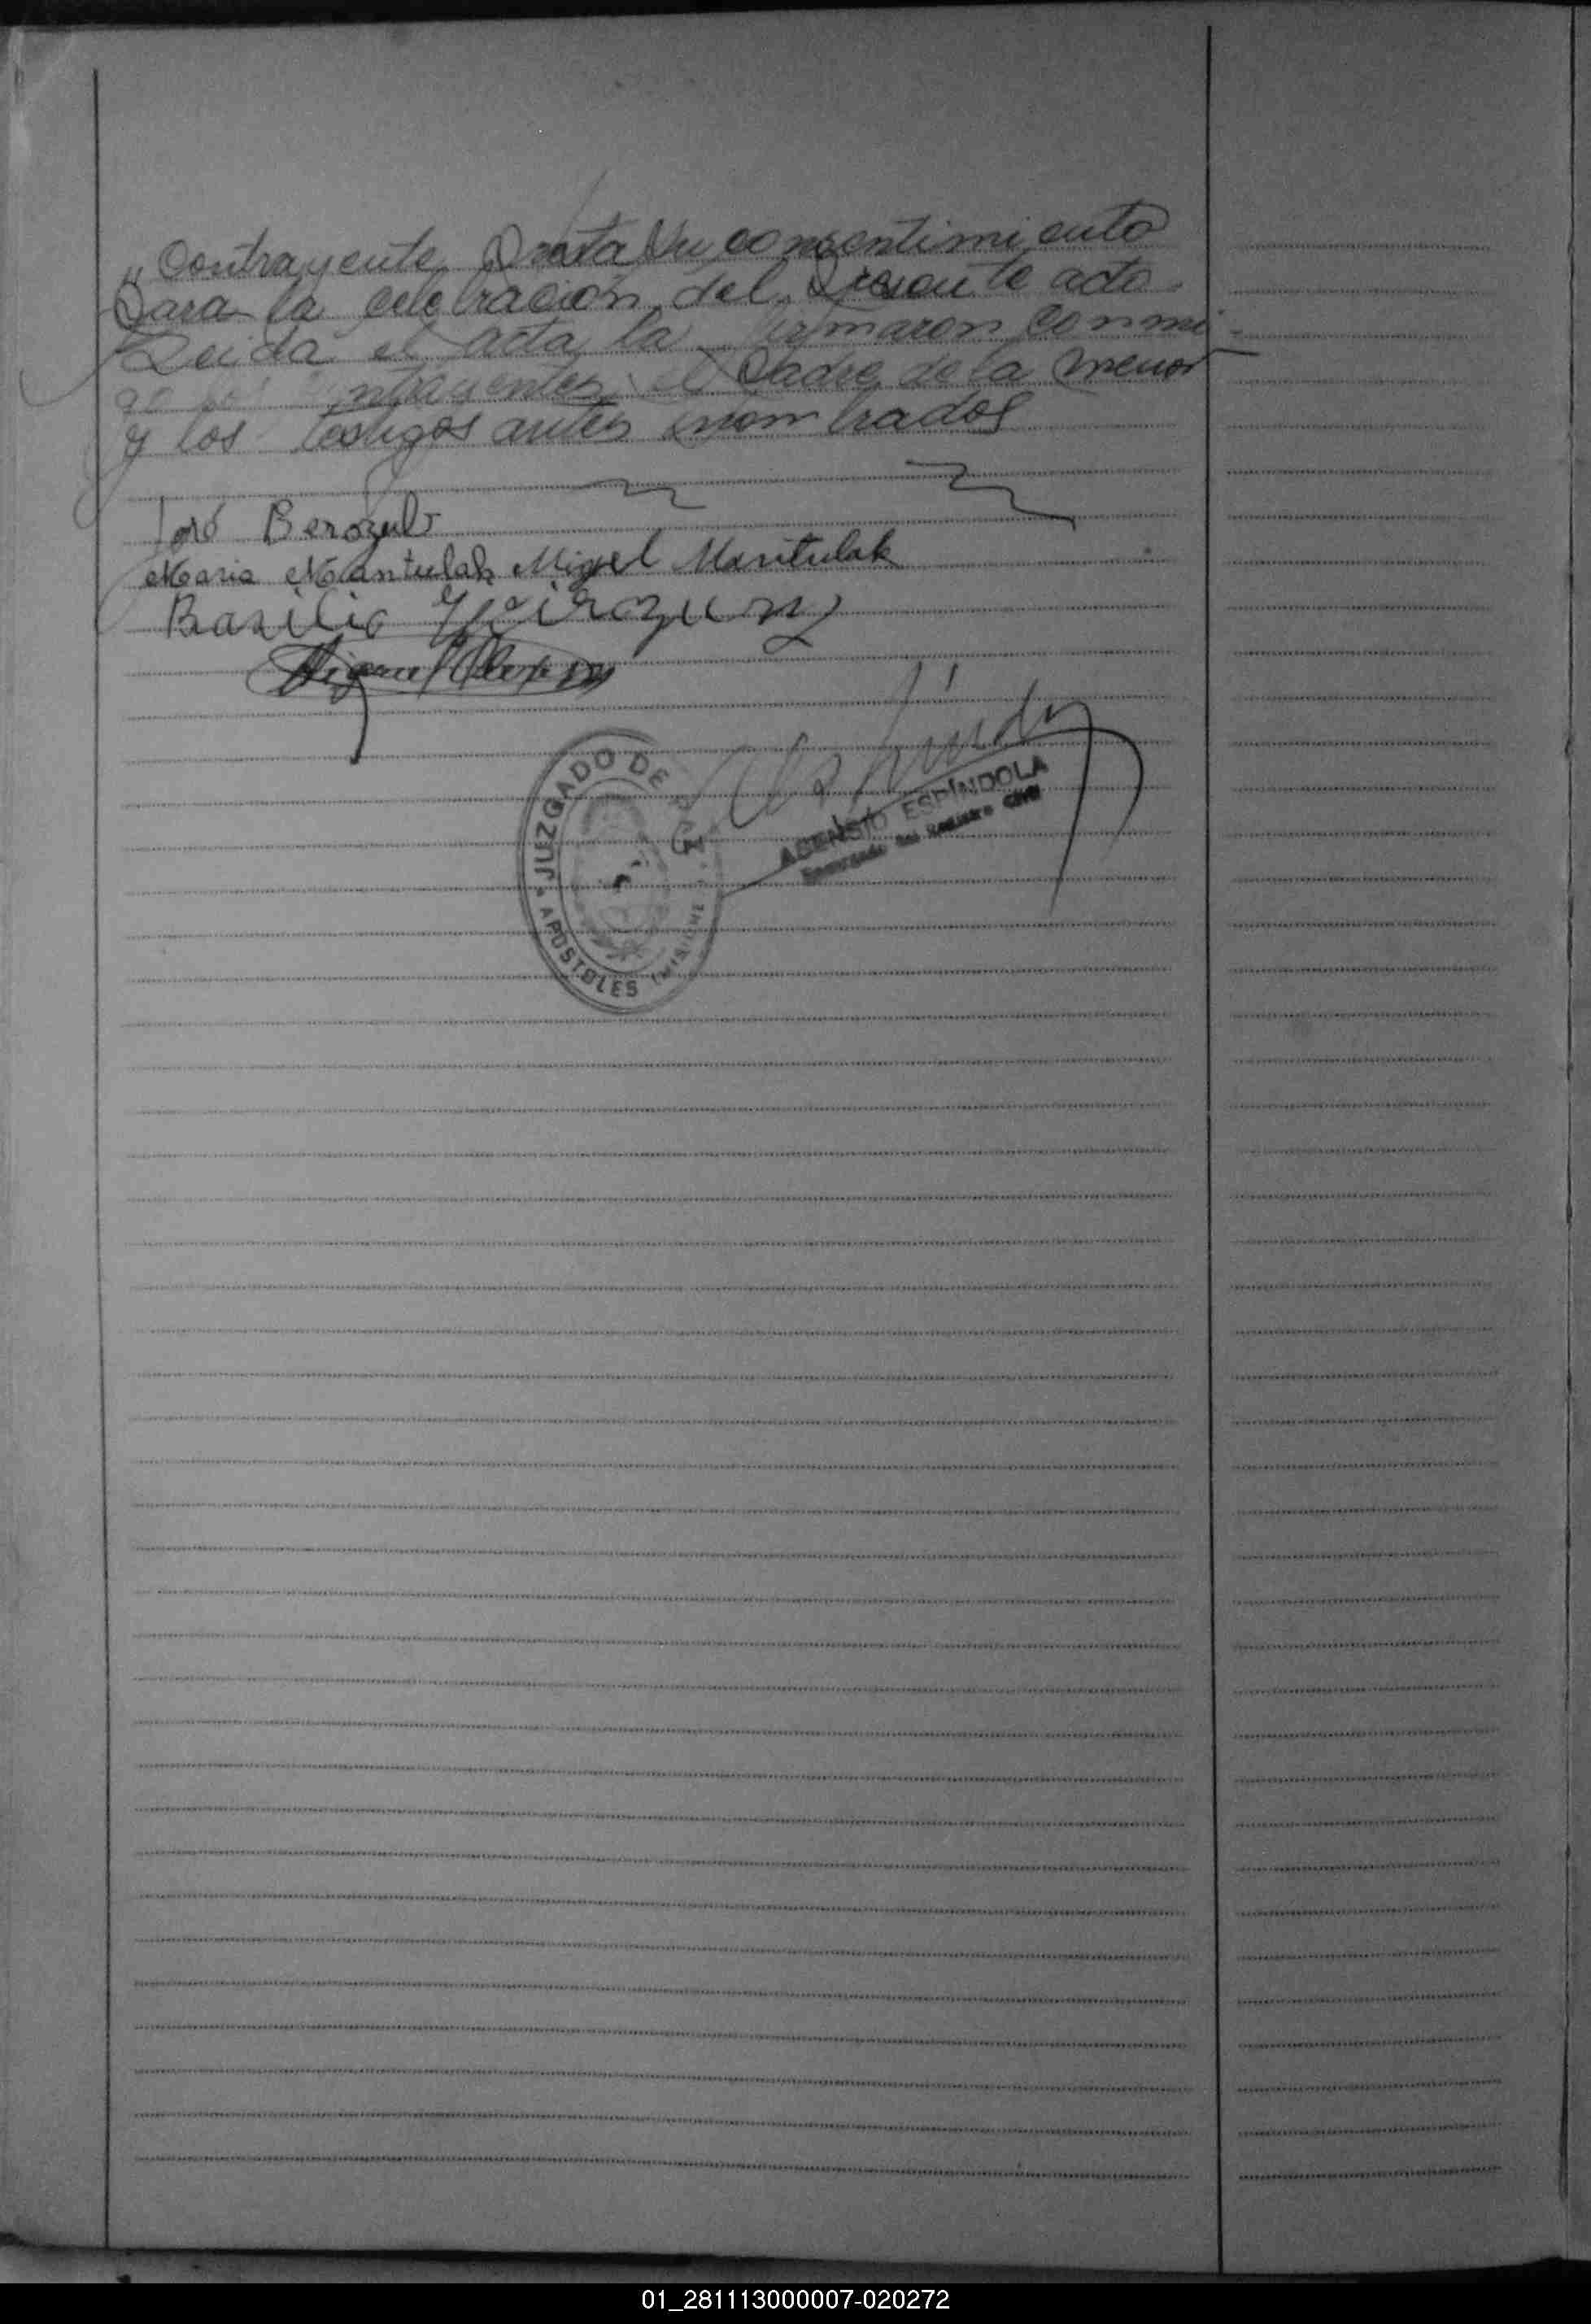 Contrayente Presta su consentimiento
Para la celebracion del Presente acto.
Leida el acta la firmaron conmi-
go los contrayentes el Padre de la menor
y los testigos antes nombrados
José
Maria Mantulak Miguel Mantulak
Basilio
Miguel
JUZGADO DE PAZ
APOSTOLES (MISIONES)
ASENSIO ESPÍNDOLA
Encargado del Registro Civil
01_281113000007-020272